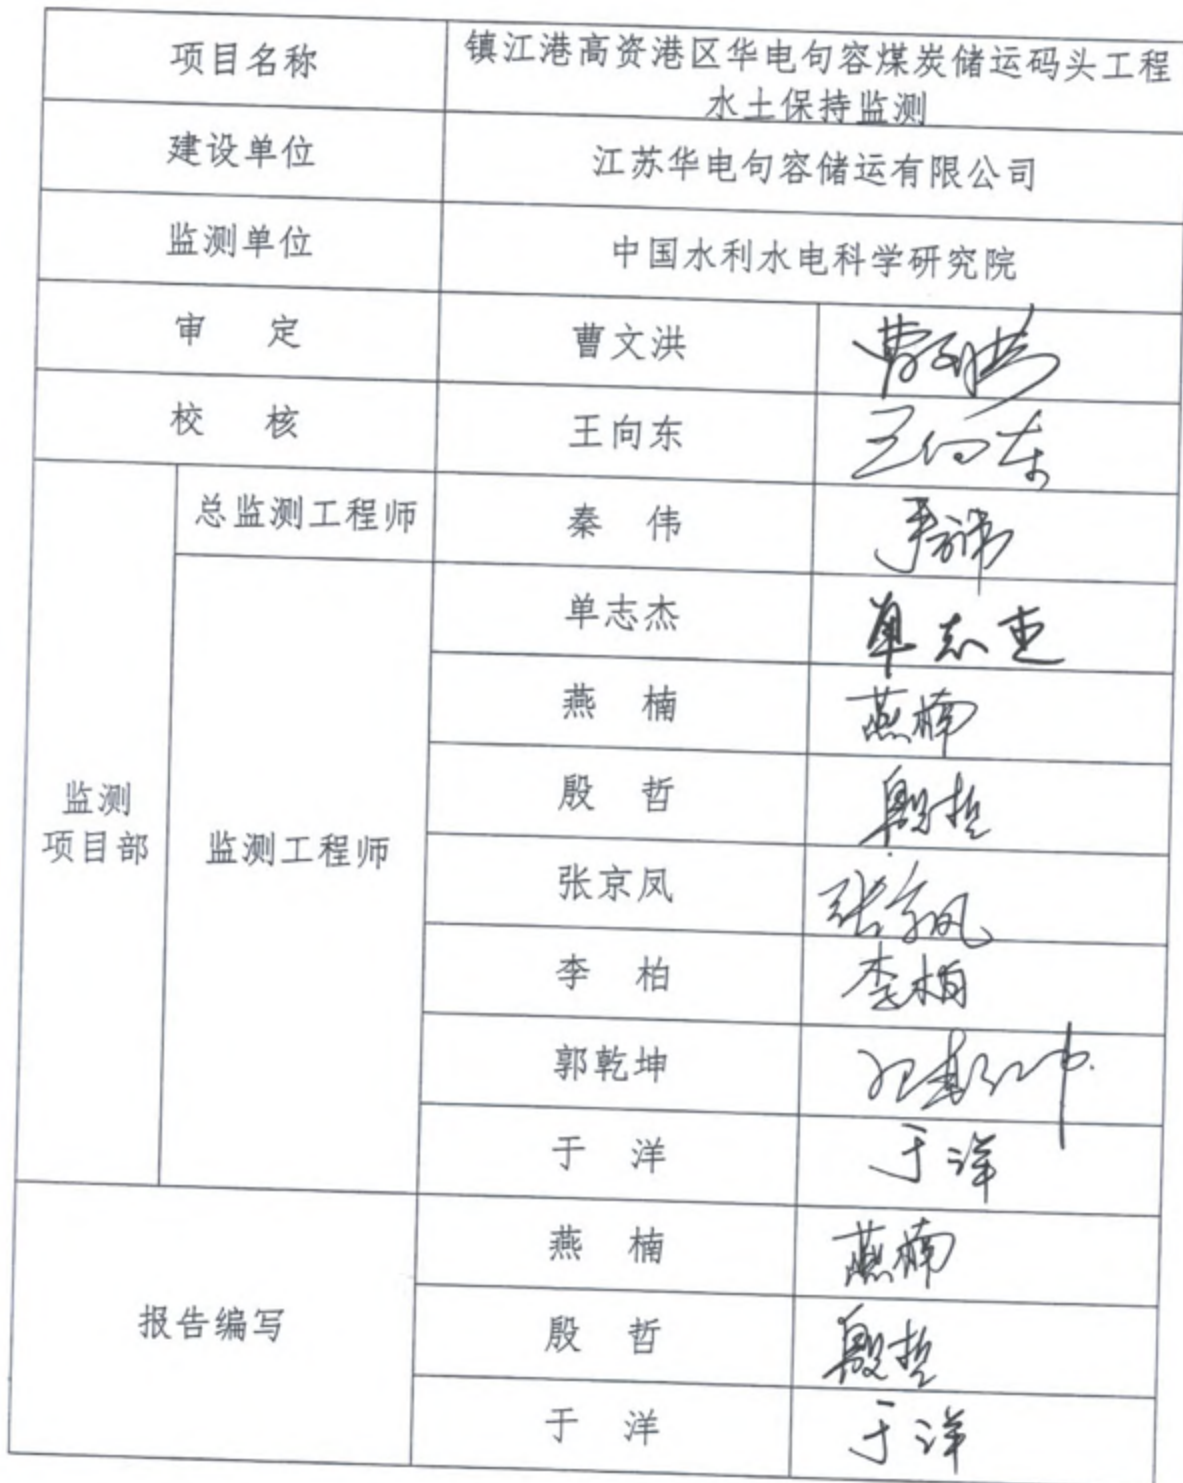 项目名称
镇江港高资港区华电句容煤炭储运码头工程
水土保持监测
建设单位
江苏华电句容储运有限公司
监测单位
中国水利水电科学研究院
审 定
曹文洪
曹文洪
校 核
王向东
王向东
监测
项目部
总监测工程师
秦 伟
秦伟
监测工程师
单志杰
单志杰
燕 楠
燕楠
殷 哲
殷哲
张京凤
张京凤
李 柏
李柏
郭乾坤
郭乾坤
于 洋
于洋
报告编写
燕 楠
燕楠
殷 哲
殷哲
于 洋
于洋